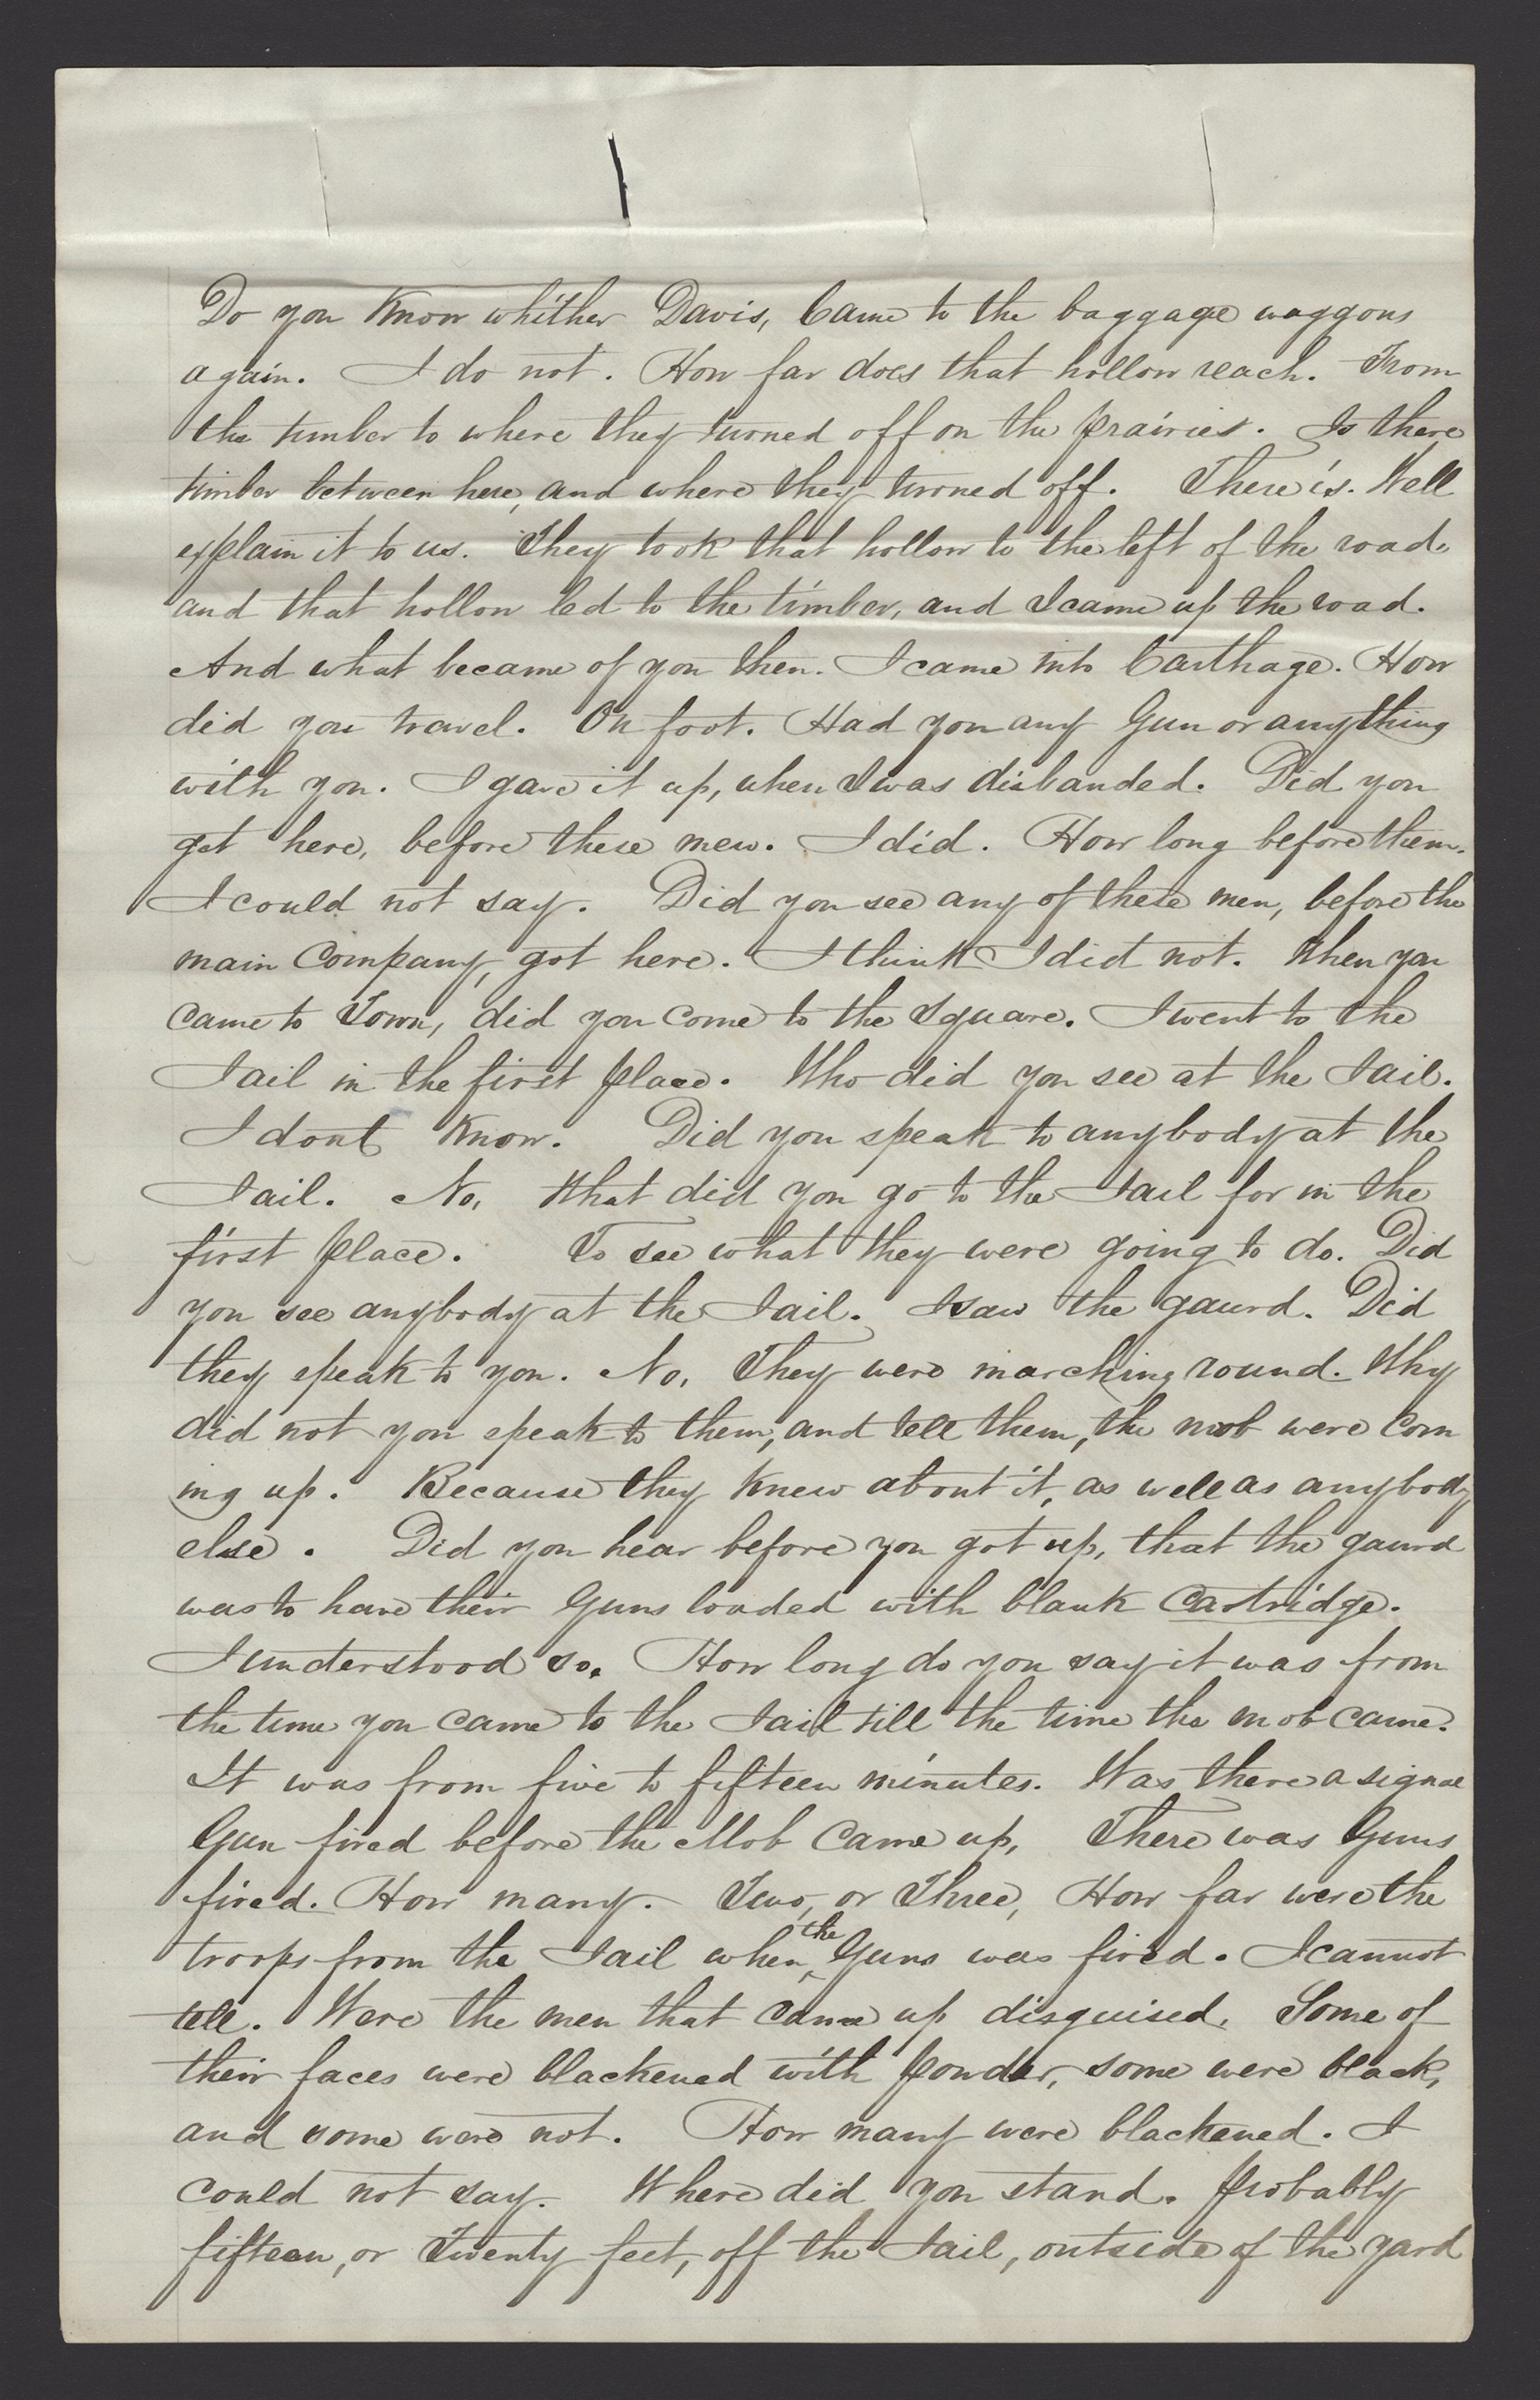 Do you Know whither Davis, Came to the baggage waggons
again. I do not. How far does that hollow reach. From
the timber to where they turned off on the prairies. Is there
timber between here, and where they turned off. There is. Well
explain it to us. They took that hollow to the left of the road.
and that hollow led to the timber, and I came up the road.
And what became of you then. I came into Carthage. How
did you travel. On foot. Had you any Gun or anything
with you. I gave it up, when I was disbanded. Did you
get here, before these men. I did. How long before them.
I could not say. Did you see any of these men, before the
main Company, got here. I think I did not. When you
came to Town, did you come to the Square. I went to the
Jail in the first place. Who did you see at the Jail.
I dont Know. Did you speak to anybody at the
Jail. No, What did you go to the Jail for in the
first place. To see what they were going to do. Did
you see anybody at the Jail. I saw the gaurd. Did
they speak to you. No, They were marching round. Why
did not you speak to them, and tell them, the mob were com
ing up. Because they Knew about it, as well as anybody
else. Did you hear before you got up, that the gaurd
was to have their Guns loaded with blank Cartridge.
I understood so. How long do you say it was from
the time you came to the Jail till the time the mob came.
It was from five to fifteen minutes. Was there a signal
Gun fired before the Mob Came up, There was Guns
fired. How many. Two, or Three, How far were the
troops from the Jail when the Guns was fired. I cannot
tell. Were the men that came up disguised. Some of
their faces were blackened with powder, some were black,
and some were not. How many were blackened. I
could not say. Where did you stand. Probably
fifteen, or Twenty feet, off the Jail, outside of the yard